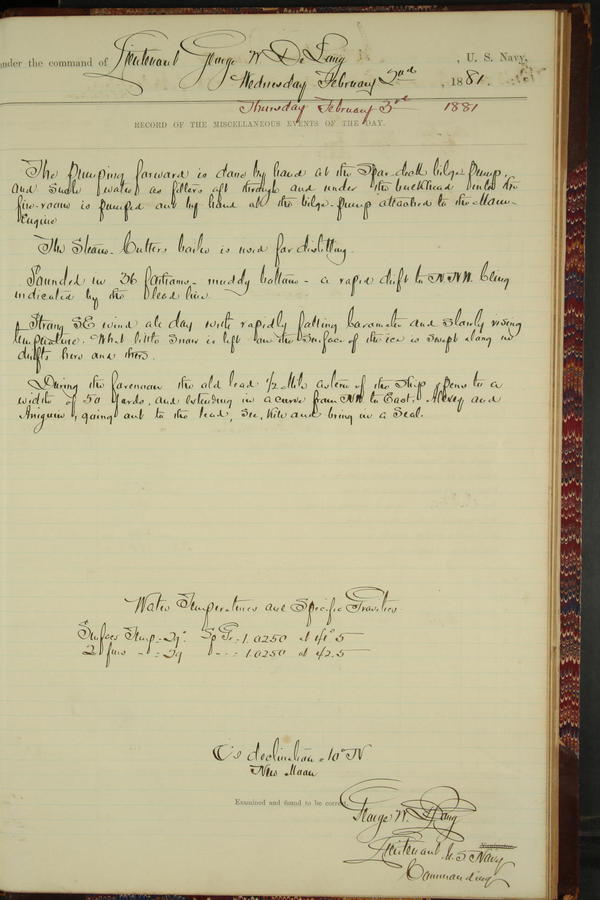 under the command of Lieutenant George W. De Long, U. S. Navy,
Wednesday February 2nd, 1881.
Thursday February 3rd 1881
RECORD OF THE MISCELLANEOUS EVENTS OF THE DAY.
The pumping forward is done by hand at the Spar-deck bilge pump,
and such water as filters aft through and under the bulkhead into the
fire-room is pumped out by hand at the bilge-pump attached to the Main-
Engine
The Steam-Cutters boiler is used for distilling.
Sounded in 36 fathoms - muddy bottom - a rapid drift to N.N.W. being
indicated by the lead line.
Strong SE wind all day with rapidly falling barometer and slowly rising
temperature. What little snow is left on the surface of the ice is swept along in
drifts here and there.
During the forenoon the old lead 1/2 Mile astern of the Ship, opens to a
width of 50 yards, and extending in a curve from NW to East. Alexey and
Aniguin, going out to the lead, see, kill and bring in a Seal.
Water Temperatures and Specific Gravities
Surface Temp = 29°. Sp Gr = 1.0250 at 41°.5
2 fms - = 29 - - = 1.0250 at 42.5
☾'s declination = 10° N
New Moon
Examined and found to be correct.
George W. De Long
Lieutenant U.S. Navy
Navigator.
Commanding